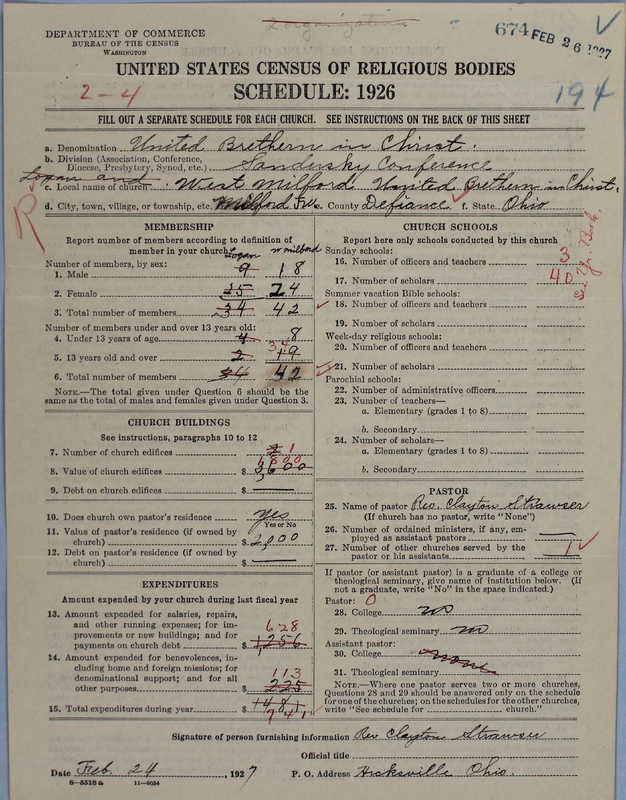 2 organizations
DEPARTMENT OF COMMERCE
BUREAU OF THE CENSUS
WASHINGTON
674 FEB 26 1927
UNITED STATES CENSUS OF RELIGIOUS BODIES
2-4
SCHEDULE: 1926
194
FILL OUT A SEPARATE SCHEDULE FOR EACH CHURCH. SEE INSTRUCTIONS ON THE BACK OF THIS SHEET
a. Denomination United Brethern in Christ.
b. Division (Association, Conference, Diocese, Presbytery, Synod, etc.) Sandersky Conference
Logan and
c. Local name of church West Milford United Brethern in Christ.
d. City, town, village, or township, etc. Milford Twp. e. County Defiance f. State Ohio
R
MEMBERSHIP
Report number of members according to definition of
member in your church
Logan W Milford
Number of members, by sex:
1. Male 9 18
2. Female 25 24
3. Total number of members 34 42
Number of members under and over 13 years old:
4. Under 13 years of age 4 8
5. 13 years old and over 2 19 34
6. Total number of members 34 42
NOTE.—The total given under Question 6 should be
same as the total of males and females given under Question 3.
CHURCH BUILDINGS
See instructions, paragraphs 10 to 12
7. Number of church edifices 2 1
8. Value of church edifices $ 3,600 1800
9. Debt on church edifices $ —
10. Does church own pastor's residence Yes
Yes or No
11. Value of pastor's residence (if owned by
church) $ 2,000
12. Debt on pastor's residence (if owned by
church) $ —
EXPENDITURES
Amount expended by your church during last fiscal year
13. Amount expended for salaries, repairs,
and other running expenses; for im-
provements or new buildings; and for
payments on church debt $ 1,256 628
14. Amount expended for benevolences, in-
cluding home and foreign missions; for
denominational support; and for all
other purposes 225 113
15. Total expenditures during year $ 1481 741
CHURCH SCHOOLS
Report here only schools conducted by this church
Sunday schools:
16. Number of officers and teachers 3
17. Number of scholars 40
See Yr. Book
Summer vacation Bible schools:
18. Number of officers and teachers
19. Number of scholars
Week-day religious schools:
20. Number of officers and teachers
21. Number of scholars
Parochial schools:
22. Number of administrative officers
23. Number of teachers—
a. Elementary (grades 1 to 8)
b. Secondary
24. Number of scholars—
a. Elementary (grades 1 to 8)
b. Secondary
PASTOR
25. Name of pastor Rev. Clayton Strawser
(If church has no pastor, write "None")
26. Number of ordained ministers, if any, em-
ployed as assistant pastors —
27. Number of other churches served by the
pastor or his assistants 1
If pastor (or assistant pastor) is a graduate of a college or
theological seminary, give name of institution below. (If
not a graduate, write "No" in the space indicated.)
Pastor: 0
28. College no
29. Theological seminary no
Assistant pastor:
30. College none
31. Theological seminary
NOTE.—Where one pastor serves two or more churches,
Questions 28 and 29 should be answered only on the schedule
for one of the churches; on the schedules for the other churches,
write "See schedule for church."
Signature of person furnishing information Rev Clayton Strawser
Official title
Date Feb. 24, 1927 P. O. Address Hicksville Ohio.
8-5318 a 11-9084